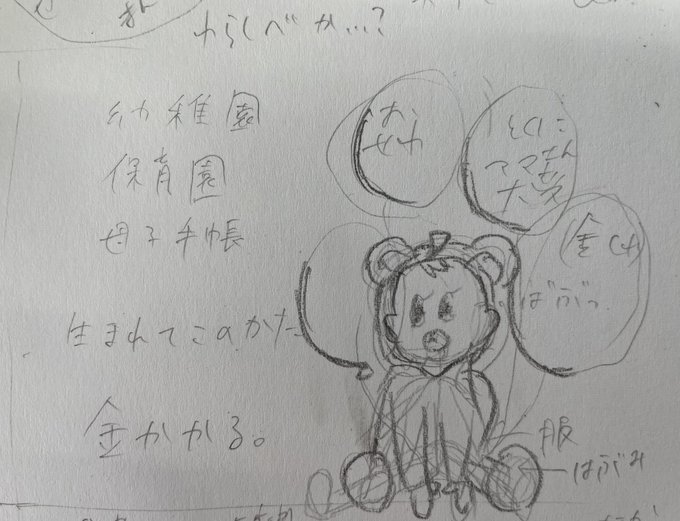 わらしべか…?
幼稚園
保育園
母子手帳
生まれてこのかた
金かかる。
お
せわ
とくに
ママさん
大変
ばぶっ
服
はぶみ